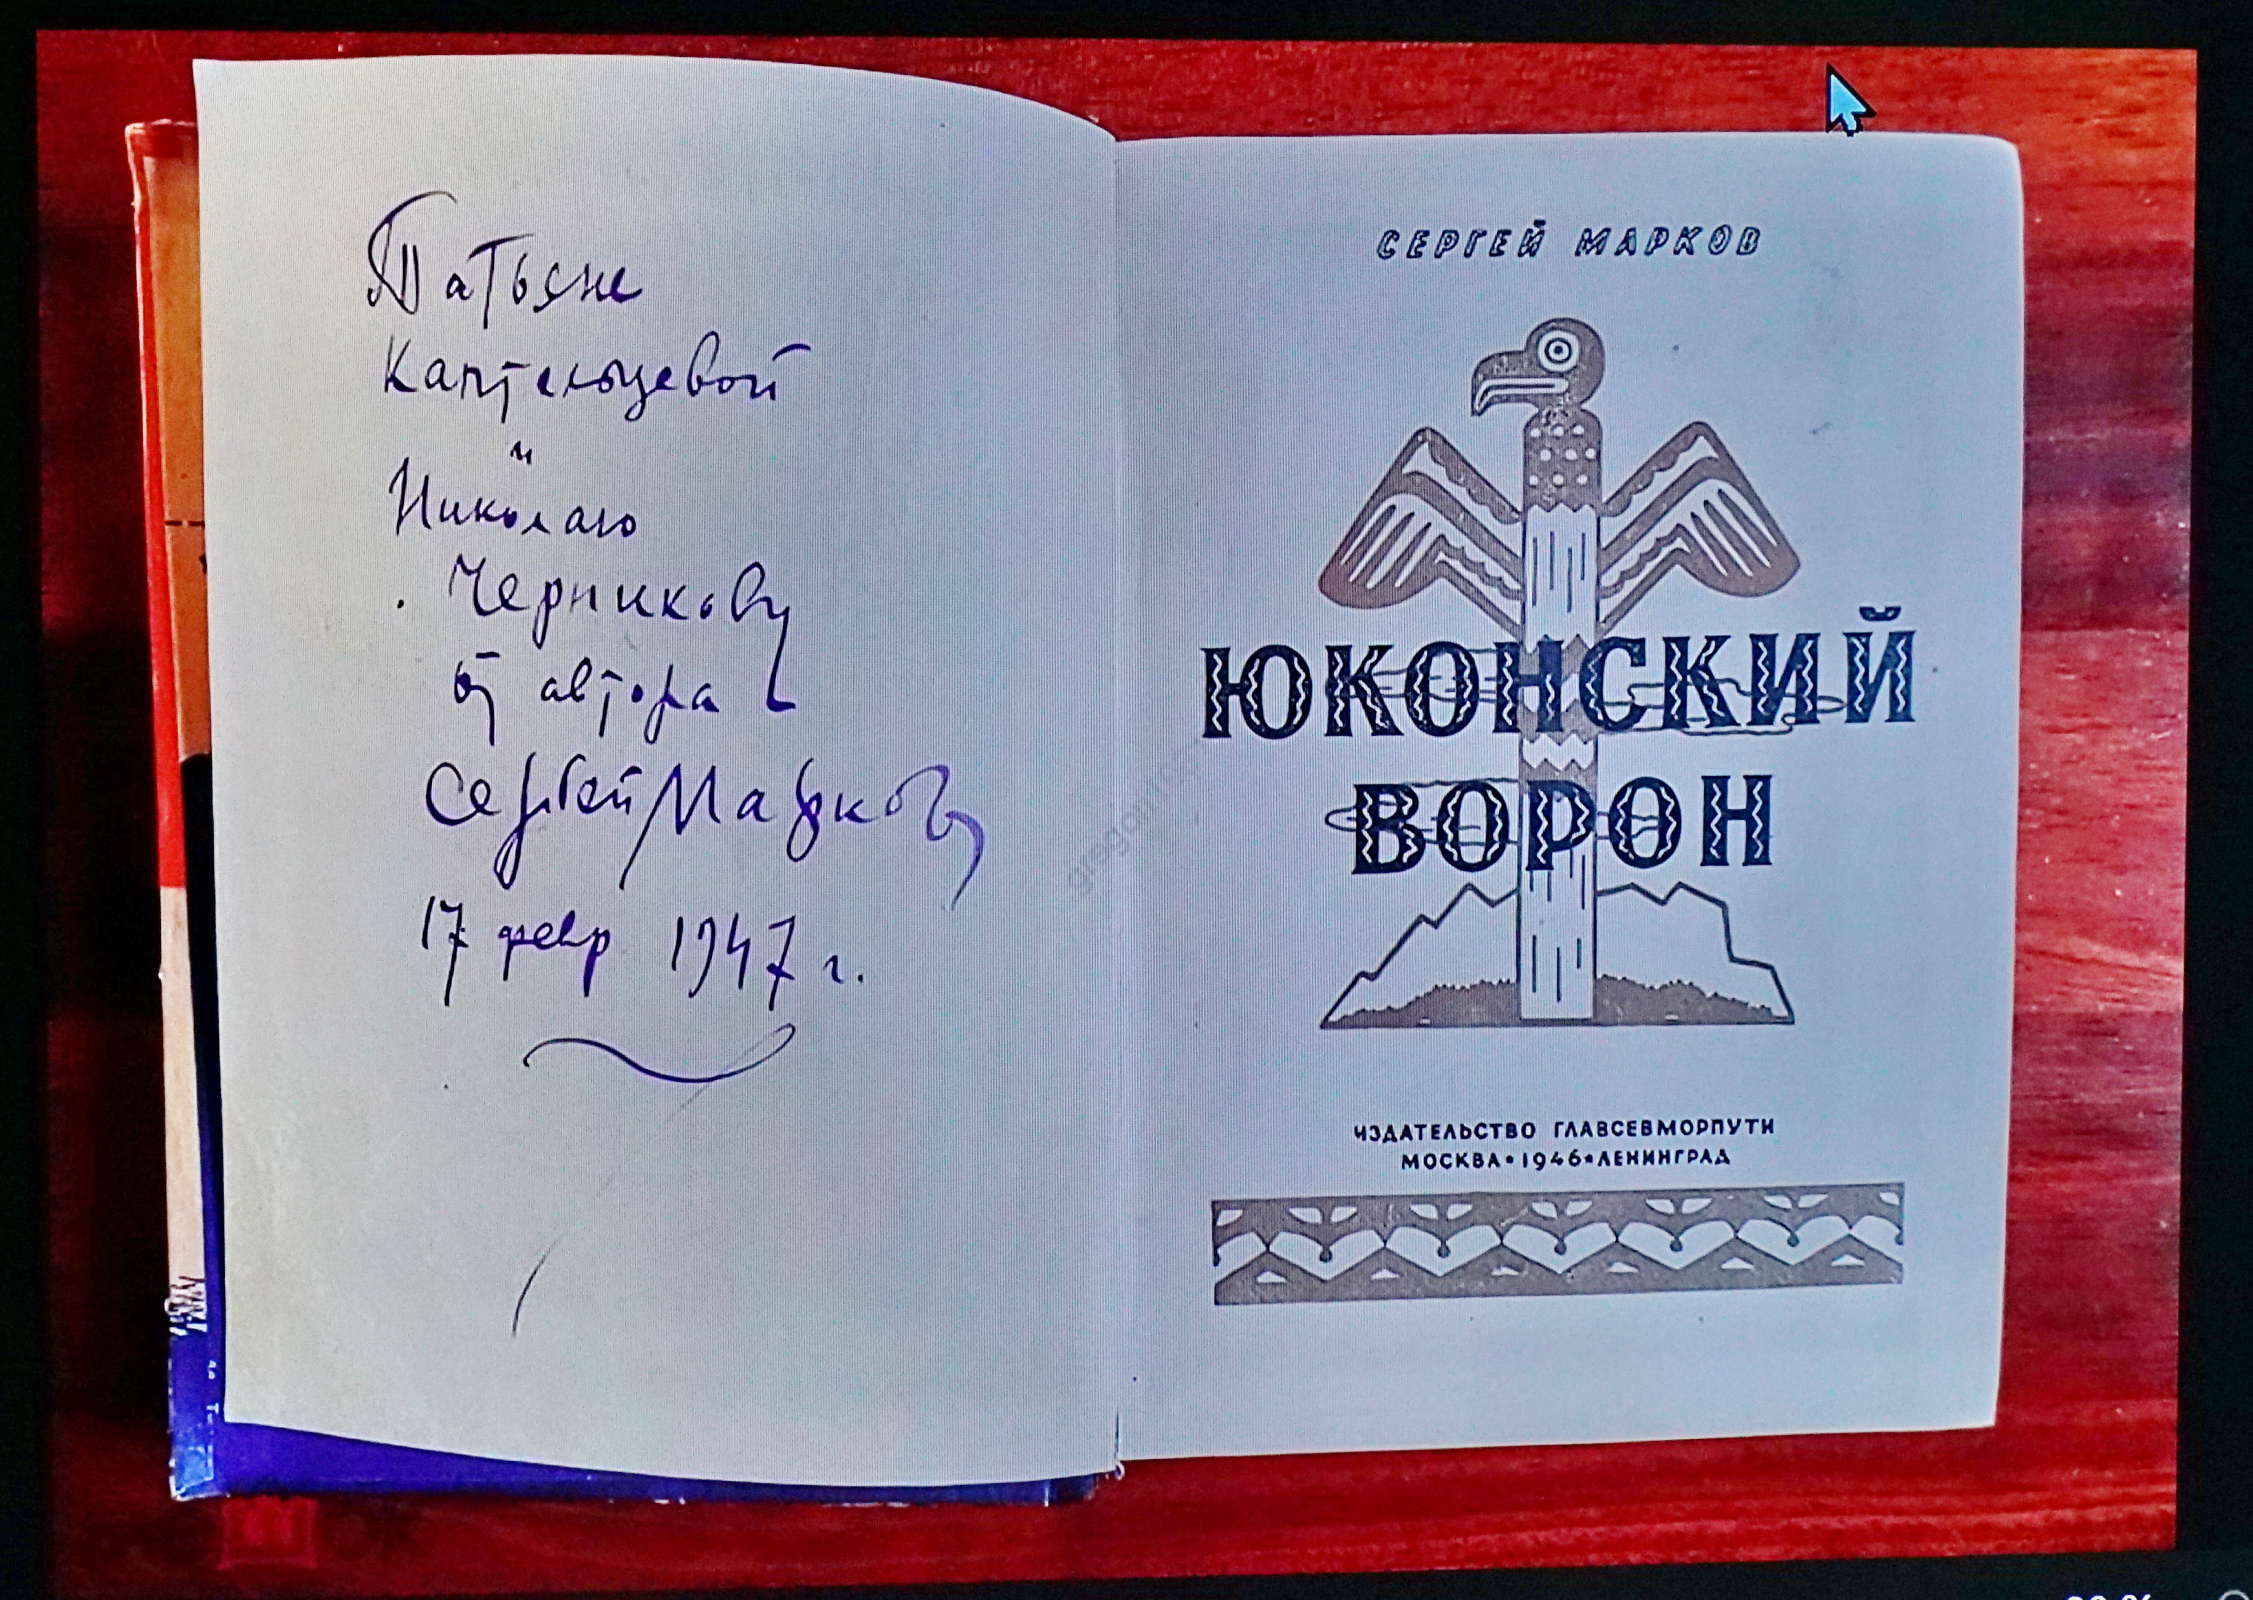 Татьяне
Каптельцевой
и
Николаю
Черникову
от автора
Сергей Марков
17 февр 1947 г.
СЕРГЕЙ МАРКОВ
ЮКОНСКИЙ
ВОРОН
ИЗДАТЕЛЬСТВО ГЛАВСЕВМОРПУТИ
МОСКВА★1946★ЛЕНИНГРАД